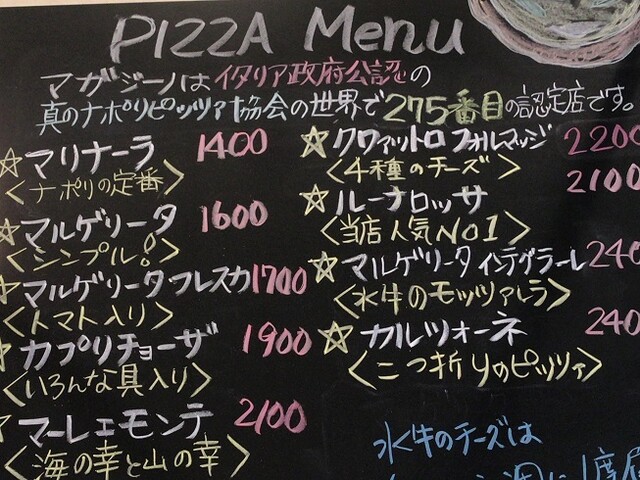 PIZZA Menu
マガジーノはイタリア政府公認の
真のナポリピッツァ協会の世界で275番目の認定店です。
☆マリナーラ 1400
<ナポリの定番>
☆マルゲリータ 1600
<シンプル!>
☆マルゲリータフレスカ 1700
<トマト入り>
カプリチョーザ 1900
<いろんな具入り>
マーレエモンテ 2100
<海の幸と山の幸>
☆クワァットロフォルマッジ 2200
<4種のチーズ>
☆ルーナロッサ 2100
<当店人気NO1>
☆マルゲリータインテグラーレ 240
<水牛のモッツァレラ>
☆カルツォーネ 240
<二つ折りのピッツァ>
水牛のチーズは